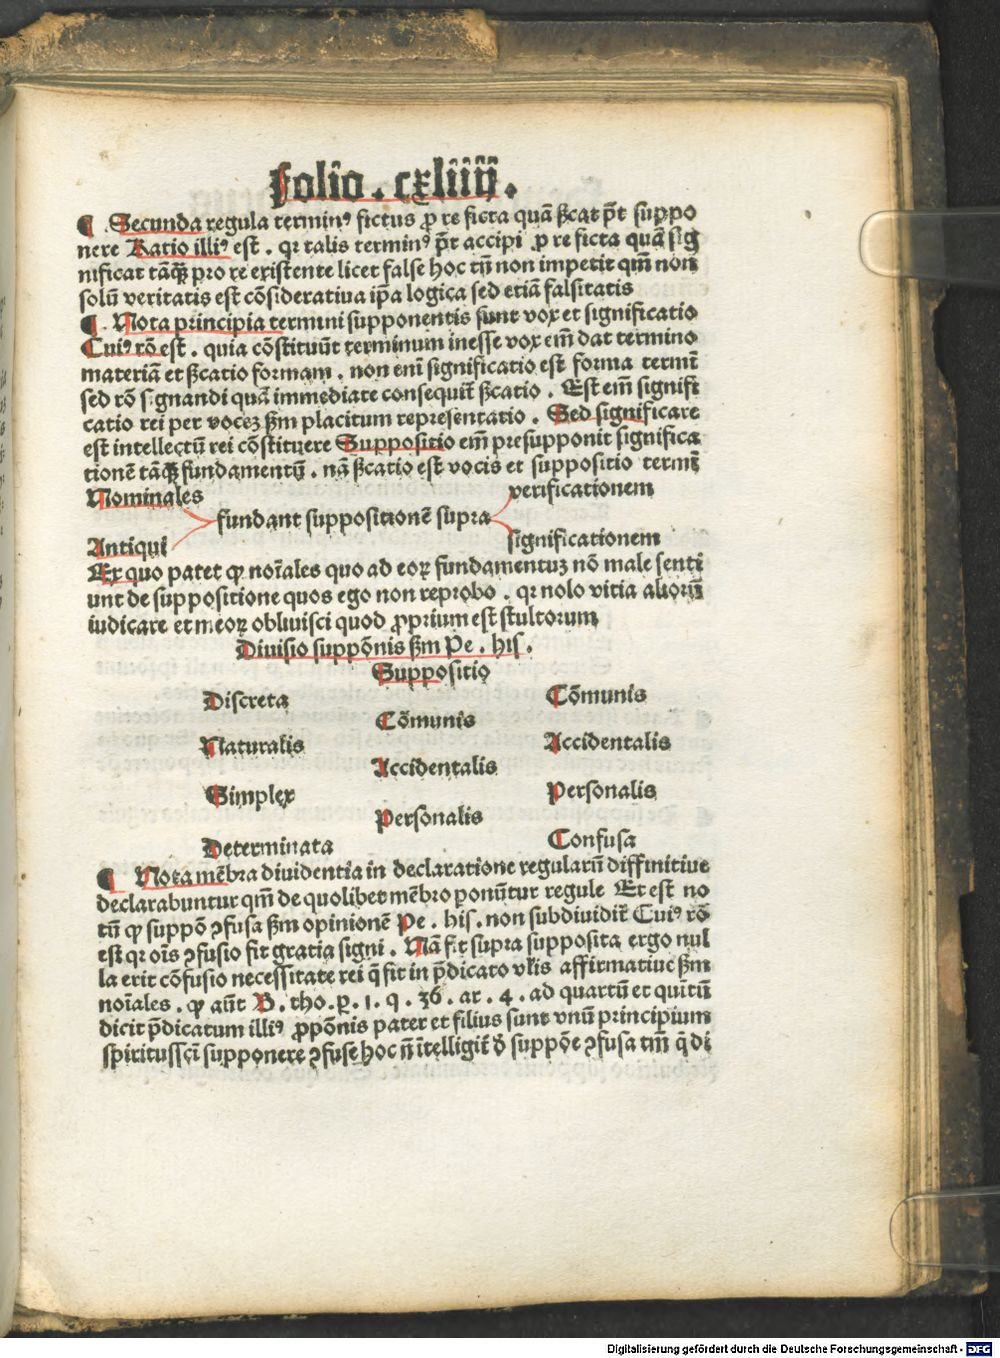 folio . cxliiij .
¶ . Secunda regula terminꝰ fictus ꝓ re ficta quā ſ̄cat pr̄t suppo
nere Ratio illiꝰ est . qꝛ talis terminꝰ pr̄t accipi ꝓ re ficta quā sig
nificat tāqꝫ pro re existente licet false hoc tn̄ non impetit qm̄ non
solū veritatis est cōsideratiua ip̄a logica sed etiā falsitatis
¶ . Nota principia termini supponentis sunt vox et significatio
Cuiꝰ rō est . quia cōstituūt terminum inesse vox em̄ dat termino
materiā et ſ̄catio formam . non eni significatio est forma termī
sed rō signandi quā immediate consequit̄ ſ̄catio . Est em̄ signifi
catio rei per vocez ſm̄ placitum representatio . Sed significare
est intellectū rei cōstituere Suppositio em̄ presupponit significa
tionē tāqꝫ fundamentū . nā ſ̄catio est vocis et suppositio termī
Nominales verificationem
fundant suppositionē supra
Antiqui significationem
Ex quo patet ꝙ noīales quo ad eoꝝ fundamentuz nō male senti
unt de suppositione quos ego non reprobo . qꝛ nolo vitia alioꝝ
iudicare et meoꝝ obliuisci quod ꝓprium est stultorum
Diuisio suppōnis ſm̄ Pe . his .
Suppositio
Discreta Cōmunis
Cōmunis
Naturalis Accidentalis
Accidentalis
Simplex Personalis
Personalis
Determinata Confusa
¶ Nota mēbra diuidentia in declaratione regularū diffinitiue
declarabuntur qm̄ de quolibet mēbro ponūtur regule Et est no
tū ꝙ suppō ꝯfusa ſm̄ opinionē Pe . his . non subdiuidit̄ Cuiꝰ rō
est qꝛ oīs ꝯfusio fit gratia signi . Nā fit supra supposita ergo nul
la erit cōfusio necessitate rei q̄ fit in p̄dicato vl̄is affirmatiue ſm̄
noīales . ꝙ aūt B . tho . p . 1 . q . 36 . ar . 4 . ad quartū et quītū
dicit p̄dicatum illiꝰ ꝓpōnis pater et filius sunt vnū principium
spiritussct̄i supponere ꝯfuse hoc n̄ ītelligit̄ ꝺ̄ suppōe ꝯfusa tm̄ q̄ di
Digitalisierung gefördert durch die Deutsche Forschungsgemeinschaft - DFG